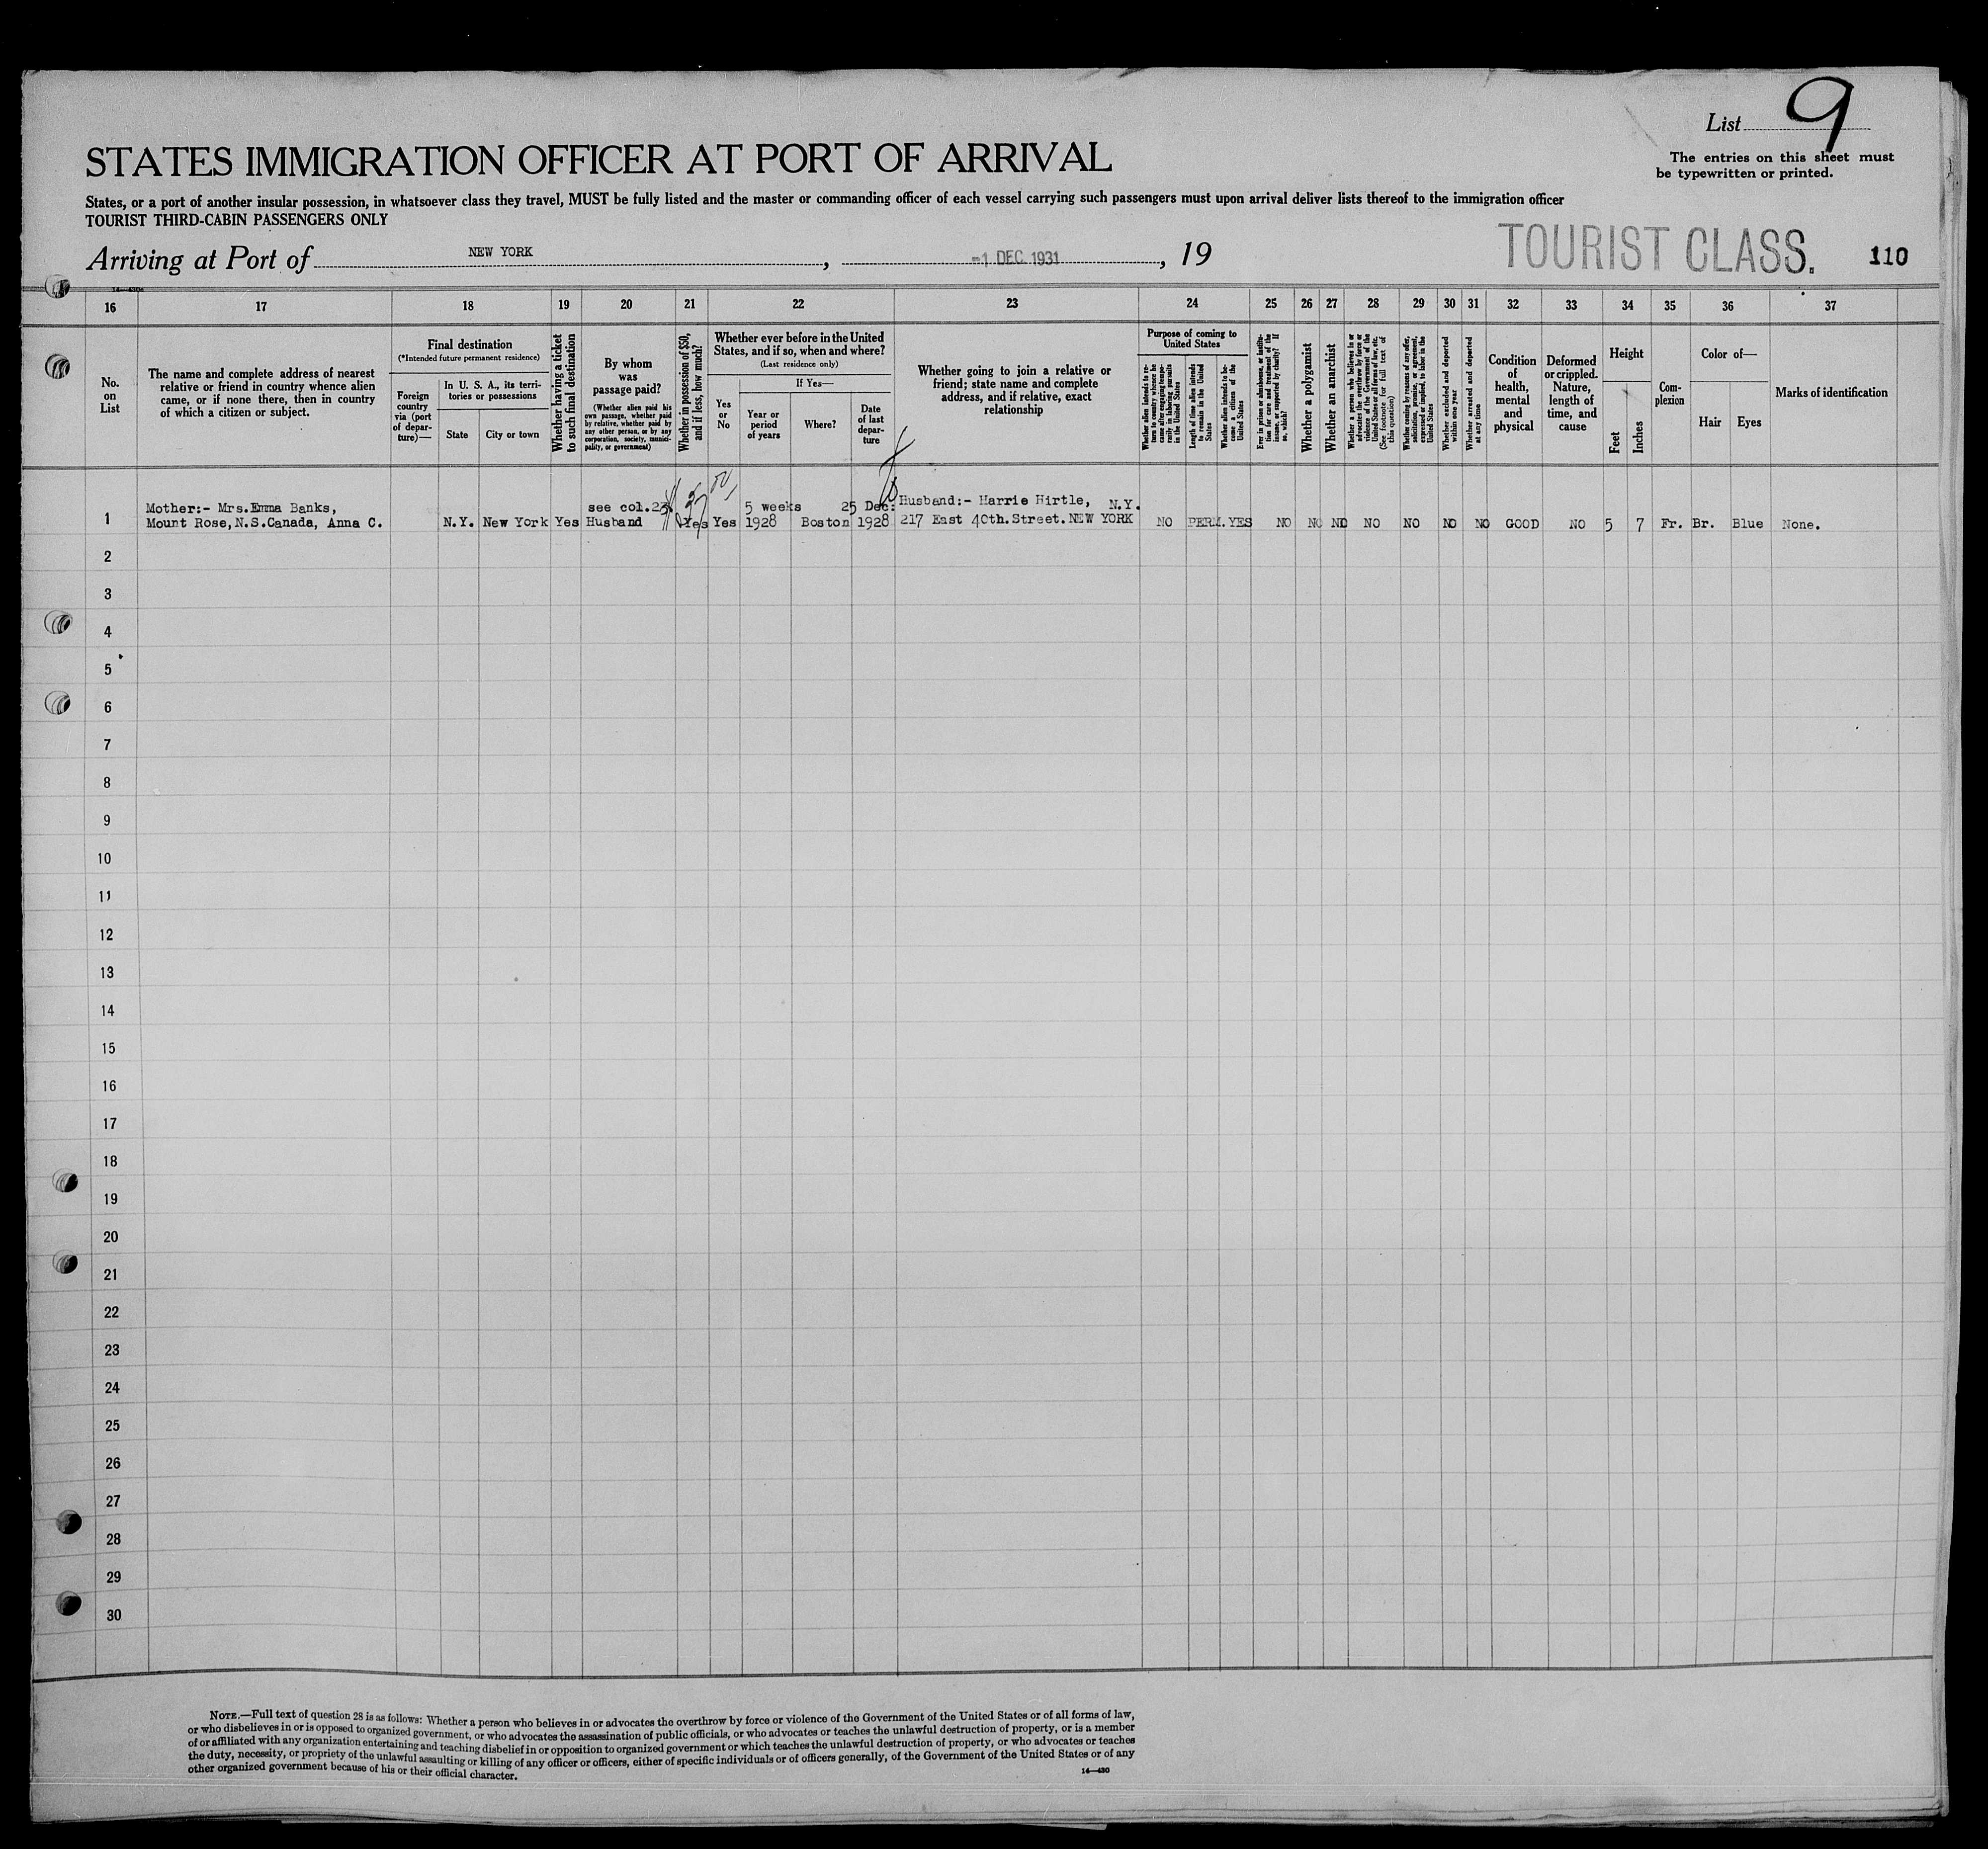 List 9
The entries on this sheet must
be typewritten or printed.
STATES IMMIGRATION OFFICER AT PORT OF ARRIVAL
States, or a port of another insular possession, in whatsoever class they travel, MUST be fully listed and the master or commanding officer of each vessel carrying such passengers must upon arrival deliver lists thereof to the immigration officer
TOURIST THIRD-CABIN PASSENGERS ONLY
TOURIST CLASS. 110
Arriving at Port of NEW YORK, -1 DEC. 1931, 19
16 17 18 19 20 21 22 23 24 25 26 27 28 29 30 31 32 33 34 35 36 37
No.
on
List
The name and complete address of nearest
relative or friend in country whence alien
came, or if none there, then in country
of which a citizen or subject.
Final destination
(*Intended future permanent residence)
Foreign
country
via (port
of depar-
ture)—
In U. S. A., its terri-
tories or possessions
State
City or town
Whether having a ticket
to such final destination
By whom
was
passage paid?
(Whether alien paid his
own passage, whether paid
by relative, whether paid by
any other person, or by any
corporation, society, munici-
pality, or government)
Whether in possession of $50,
and if less, how much?
Whether ever before in the United
States, and if so, when and where?
(Last residence only)
Yes
or
No
If Yes—
Year or
period
of years
Where?
Date
of last
depar-
ture
Whether going to join a relative or
friend; state name and complete
address, and if relative, exact
relationship
Purpose of coming to
United States
Whether alien intends to re-
turn to country whence he
came after engaging tempo-
rarily in laboring pursuits
in the United States
Length of time alien intends
to remain in the United
States
Whether alien intends to be-
come a citizen of the
United States
Ever in prison or almshouse, or institu-
tion for care and treatment of the
insane, or supported by charity? If
so, which?
Whether a polygamist
Whether an anarchist
Whether a person who believes in or
advocates the overthrow by force or
violence of the Government of the
United States or all forms of law, etc.
(See footnote for full text of
this question)
Whether coming by reasons of any offer,
solicitation, promise, or agreement,
expressed or implied, to labor in the
United States
Whether excluded and deported
within one year
Whether arrested and deported
at any time
Condition
of
health,
mental
and
physical
Deformed
or crippled.
Nature,
length of
time, and
cause
Height
Feet
Inches
Com-
plexion
Color of—
Hair
Eyes
Marks of identification
Mother:- Mrs.Emma Banks, see col.23 5 weeks 25 Dec: Husband:- Harrie Hirtle, N.Y.
1 Mount Rose,N.S.Canada, Anna C. N.Y. New York Yes Husband Yes Yes 1928 Boston 1928 217 East 40th.Street.NEW YORK NO PERM. YES NO NO NO NO NO NO NO GOOD NO 5 7 Fr. Br. Blue None.
2
3
4
5
6
7
8
9
10
11
12
13
14
15
16
17
18
19
20
21
22
23
24
25
26
27
28
29
30
NOTE.—Full text of question 28 is as follows: Whether a person who believes in or advocates the overthrow by force or violence of the Government of the United States or of all forms of law,
or who disbelieves in or is opposed to organized government, or who advocates the assassination of public officials, or who advocates or teaches the unlawful destruction of property, or is a member
of or affiliated with any organization entertaining and teaching disbelief in or opposition to organized government or which teaches the unlawful destruction of property, or who advocates or teaches
the duty, necessity, or propriety of the unlawful assaulting or killing of any officer or officers, either of specific individuals or of officers generally, of the Government of the United States or of any
other organized government because of his or their official character.
14—430